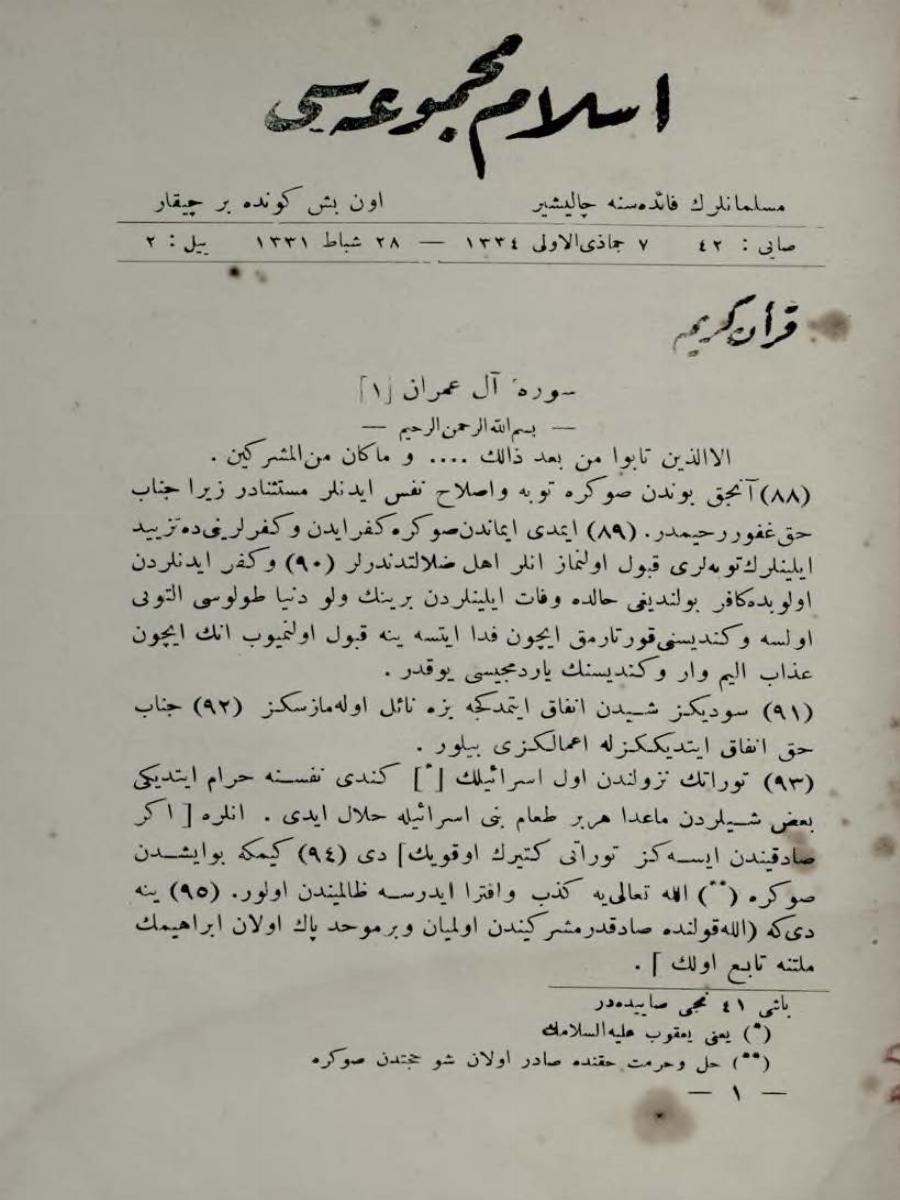 اسلام مجموعه‌سی
مسلمانلرك فائده‌سنه چالیشیر اون بش كونده بر چیقار
صایی : ٤٢ ٧ جماذی‌الاولی ١٣٣٤ — ٢٨ شباط ١٣٣١ ییل : ٢
قرأن كریم
سورهٔ آل عمران [١]
— بسم الله الرحمن الرحیم —
الاالذین تابوا من بعد ذالك .... و ماكان من‌المشركین .
(٨٨) آنجق بوندن صوكره توبه واصلاح نفس ایدنلر مستثنادر زیرا جناب
حق غفور رحیمدر. (٨٩) ایمدی ایماندن صوكره كفر ایدن و كفرلرینی‌ده تزیید
ایلینلرك توبه‌لری قبول اولنماز انلر اهل ضلالتدندرلر (٩٠) و كفر ایدنلردن
اولوبده كافر بولندیغی حالده وفات ایلینلردن برینك ولو دنیا طولوسی التونی
اولسه و كندیسنی قورتارمق ایچون فدا ایتسه ینه قبول اولنمیوب انك ایچون
عذاب الیم وار و كندیسنك یاردمجیسی یوقدر .
(٩١) سودیكز شیدن انفاق ایتمدكجه بزه نائل اوله‌مازسكز (٩٢) جناب
حق انفاق ایتدیككزله اعمالكزی بیلور .
(٩٣) توراتك نزولندن اول اسرائیلك [*] كندی نفسنه حرام ایتدیكی
بعض شیلردن ماعدا هربر طعام بنی اسرائیله حلال ایدی . انلره [ اكر
صادقیندن ایسه‌كز توراتی كتیرك اوقویك] دی (٩٤) كیمكه بوایشدن
صوكره (**) الله تعالی‌یه كذب وافترا ایدرسه ظالمیندن اولور. (٩٥) ینه
دی‌كه (الله قولنده صادقدر مشركیندن اولمیان و بر موحد پاك اولان ابراهیمك
ملتنه تابع اولك ] .
باشی ٤١ نمجی صاییده‌در
(*) یعنی یعقوب علیه‌السلامك
(**) حل وحرمت حقنده صادر اولان شو حجتدن صوكره
— ١ —